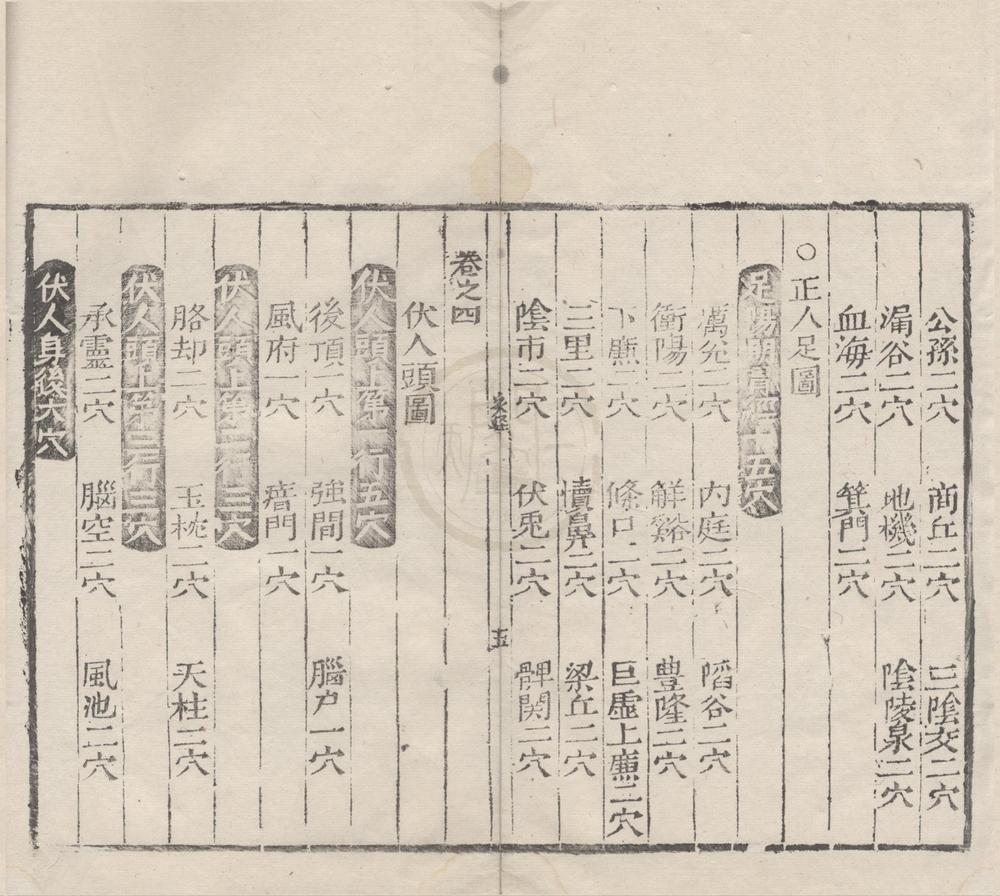 公孫二穴　商丘二穴　三陰交二穴
漏谷二穴　地機二穴　陰陵泉二穴
血海二穴　箕門二穴
○正人足圖
足陽明胃經十五穴
厲兌二穴　内庭二穴　陷谷二穴
衝陽二穴　解谿二穴　豊隆二穴
下廉二穴　條口二穴　巨虛上廉二穴
三里二穴　犢鼻二穴　梁丘二穴
陰市二穴　伏兎二穴　髀関二穴
五
卷之四
伏人頭圖
伏人頭上第一行五穴
後頂一穴　強間一穴　腦户一穴
風府一穴　瘖門一穴
伏人頭上第二行三穴
胳却二穴　玉枕二穴　天柱二穴
伏人頭上第三行三穴
承靈二穴　腦空二穴　風池二穴
伏人身後六穴